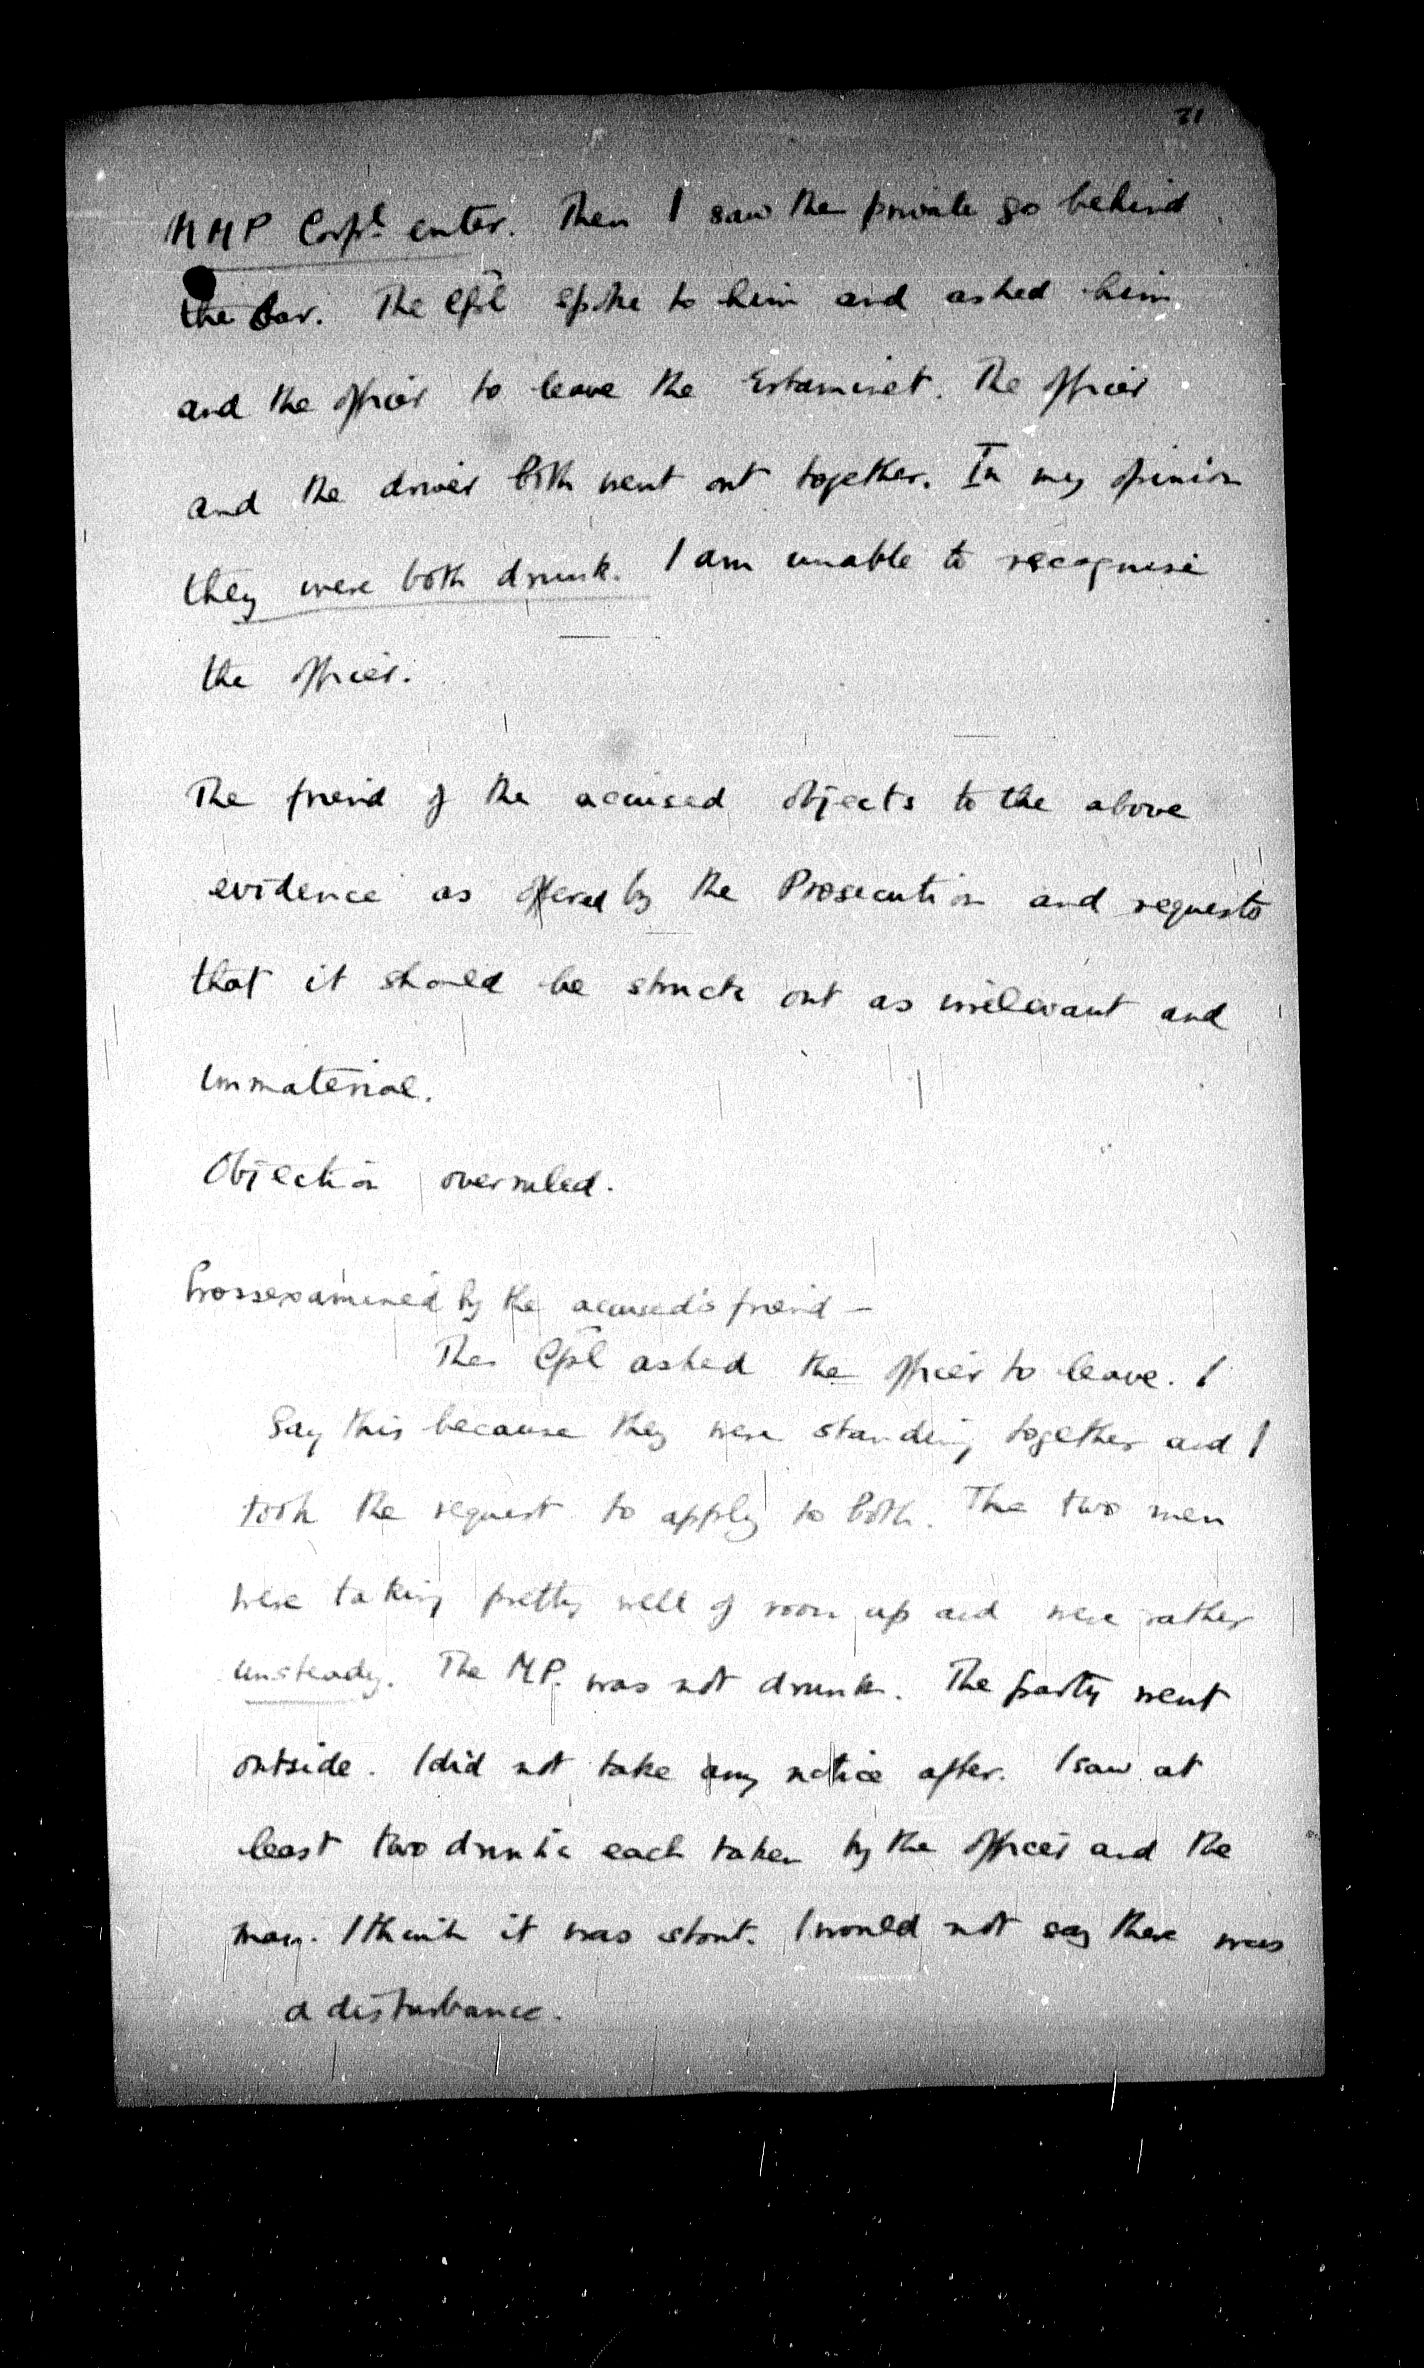 31
MMP Corpl enter. Then I saw the private go behind
the bar. The Cpl spoke to him and asked him
and the officer to leave the Estaminet. The officer
and the driver both went out together. In my opinion
they were both drunk. I am unable to recognise
the officer.
The friend of the accused objects to the above
evidence as offered by the Prosecution and requests
that it should be struck out as irrelevant and
immaterial.
Objection overruled.
Crossexamined by the accused's friend —
The Cpl asked the officer to leave. I
Say this because they were standing together and I
took the request to apply to both. The two men
were taking pretty well of room up and were rather
unsteady. The MP. was not drunk. The party went
outside. I did not take any notice after. I saw at
least two drinks each taken by the officer and the
man. I think it was stout. I would not say there was
a disturbance.